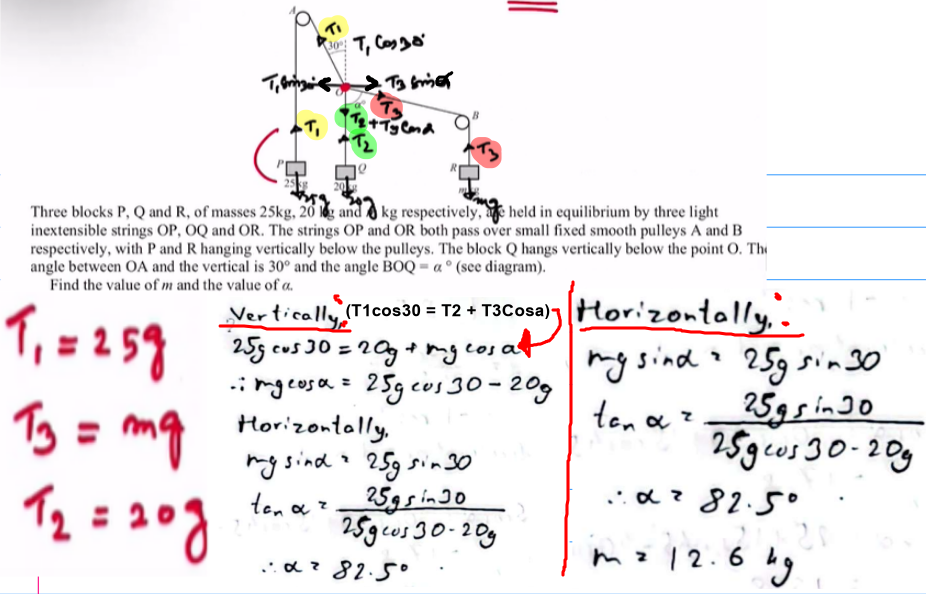 A
T₁
30°
T₁ Cos30°
T₁ Sin30
T₃ Sinα
O
α°
T₃
T₂ + T₃Cosα
B
T₁
T₂
T₃
P
Q
R
25kg
20kg
25g
20g
mg
Three blocks P, Q and R, of masses 25kg, 20 kg and m kg respectively, are held in equilibrium by three light
inextensible strings OP, OQ and OR. The strings OP and OR both pass over small fixed smooth pulleys A and B
respectively, with P and R hanging vertically below the pulleys. The block Q hangs vertically below the point O. The
angle between OA and the vertical is 30° and the angle BOQ = α ° (see diagram).
Find the value of m and the value of α.
T₁ = 25g
T₃ = mg
T₂ = 20g
Vertically: (T1cos30 = T2 + T3Cosa)
25g cos 30 = 20g + mg cos α
∴ mg cos α = 25g cos 30 - 20g
Horizontally,
mg sinα = 25g sin 30
tan α = 25g sin 30
25g cos 30 - 20g
∴ α = 82.5°
Horizontally:
mg sinα = 25g sin 30
tan α = 25g sin 30
25g cos 30 - 20g
∴ α = 82.5°
m = 12.6 kg